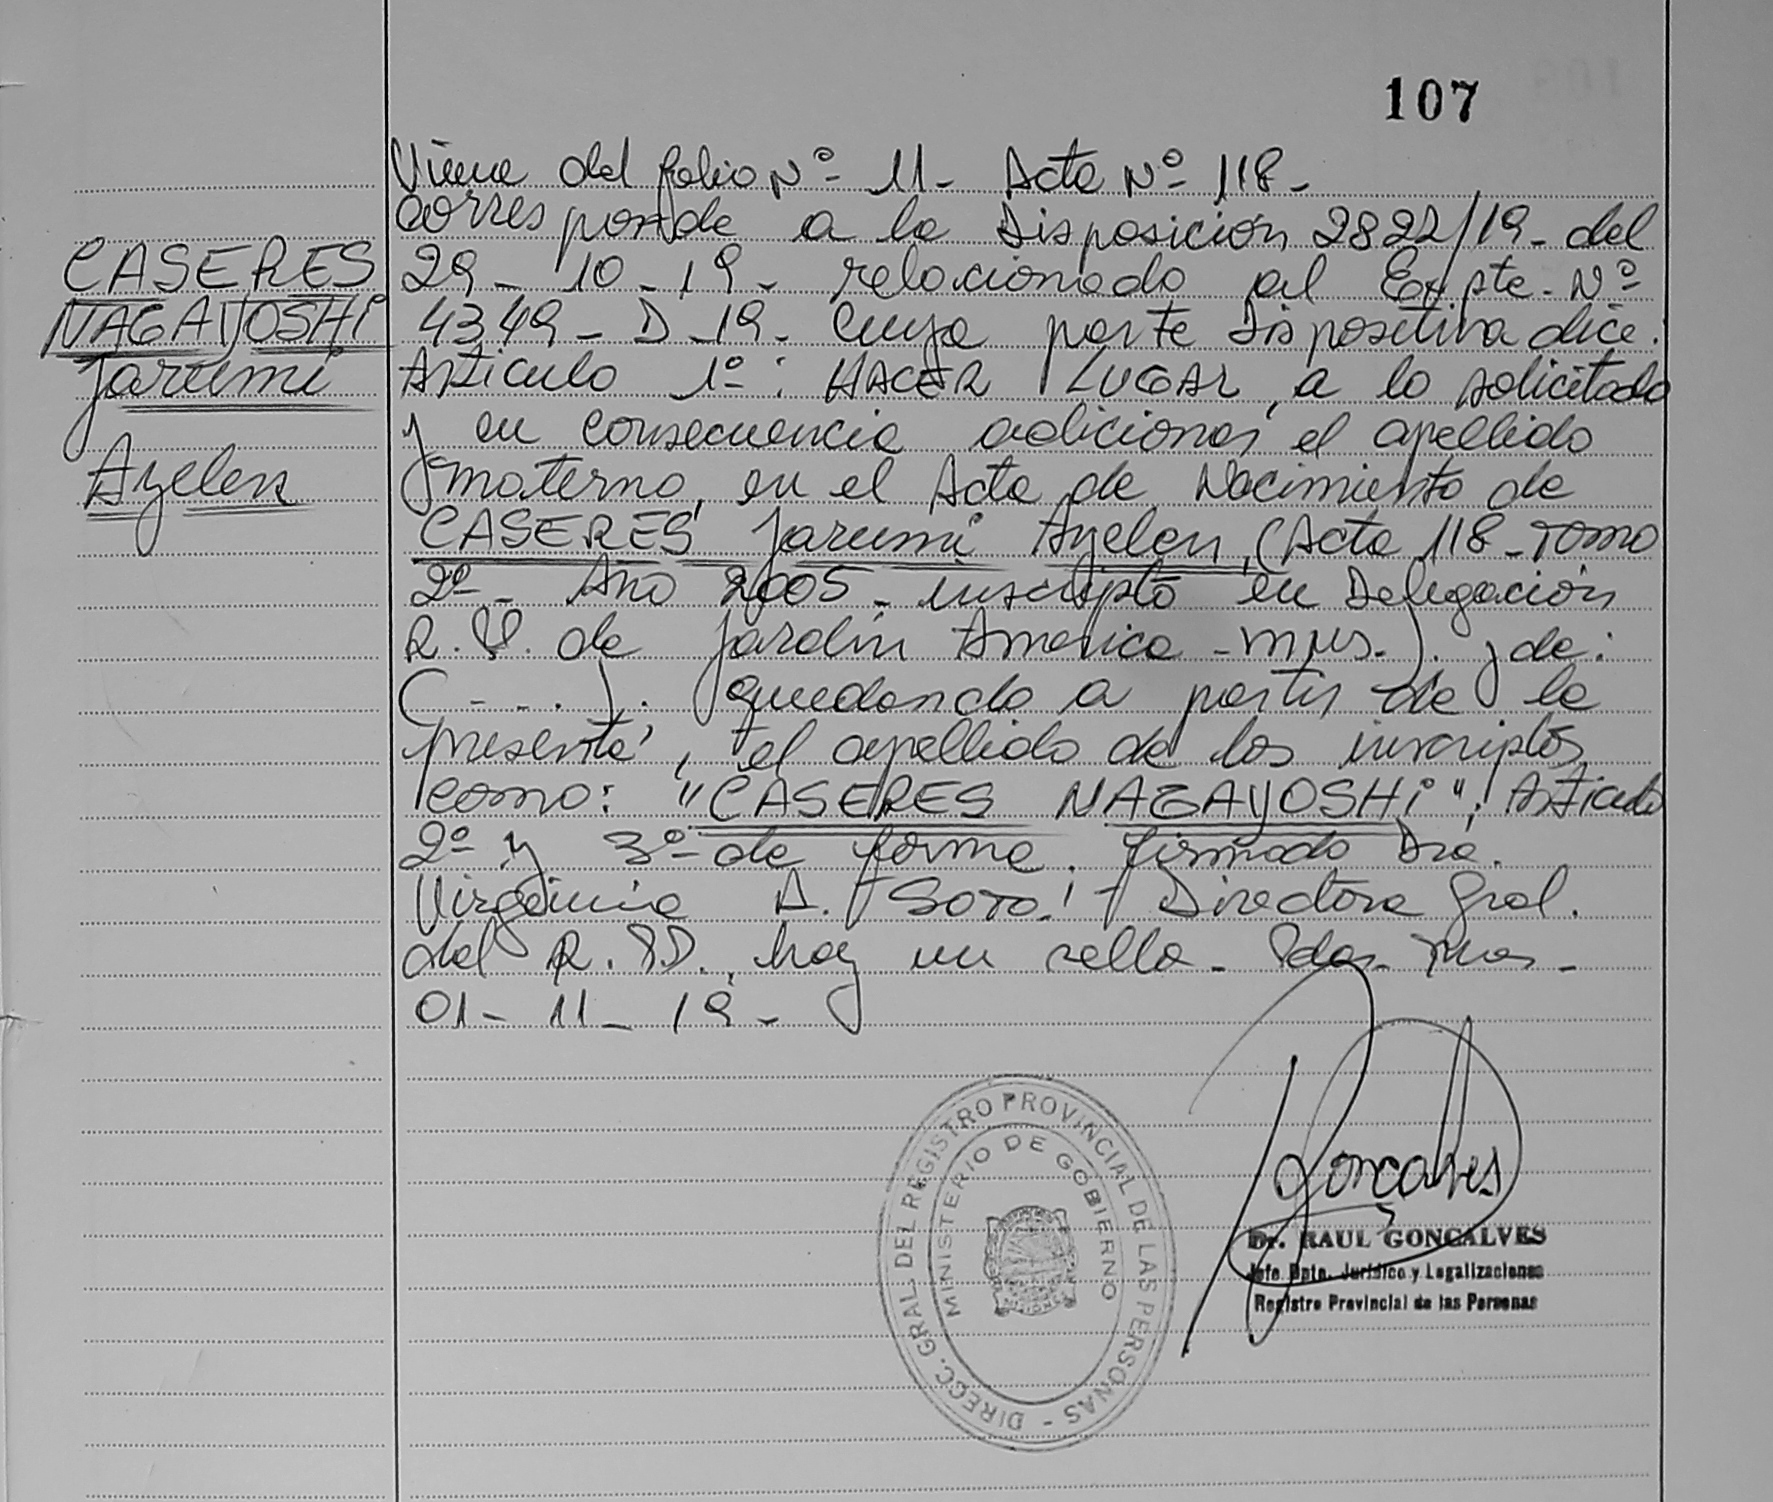 107
Viene del folio Nº 11- Acta Nº 118-
corresponde a la Disposición 2822/19- del
29-10-19- relacionado al Expte-Nº
4349-D-19- cuya parte dispositiva dice:
Articulo 1º: HACER LUGAR, a lo solicitado
y en consecuencia adicionar el apellido
materno, en el Acta de Nacimiento de
CASERES Jarumi Ayelen, (Acta 118-Tomo
2º- Año 2005- inscripto en Delegación
R.P. de Jardín América-Mnes.). y de:
(---). quedando a partir de la
presente, el apellido de los inscriptos,
como: "CASERES NAGAYOSHi"; Articulo
2º y 3º de forma. firmado Dra.
Virginia A. Soto. Directora Gral.
del R.P.P., hay un sello- Pdas- Mnes-
01-11-19-
CASERES
NAGAYOSHi
Jarumi
Ayelen
DIRECC. GRAL. DEL REGISTRO PROVINCIAL DE LAS PERSONAS -
MINISTERIO DE GOBIERNO
Goncalves
Dr. RAUL GONCALVES
Jefe Dpto. Jurídico y Legalizaciones
Registro Provincial de las Personas